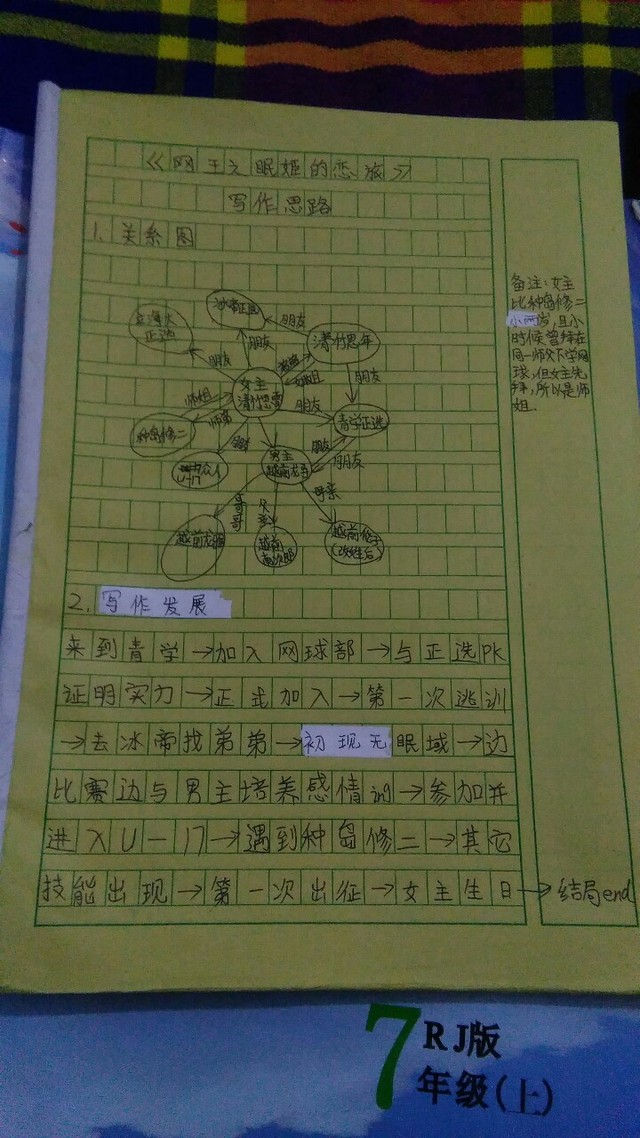 《网王之眠姬的恋旅》
写作思路
1.关系图
冰帝正选
朋友
立海大
正选
朋友
朋友
清竹思年
女主
清竹思雪
朋友
朋友
师姐
师弟
种岛修二
青学正选
U-17
男主
越前龙马
朋友
朋友
母亲
哥哥
父亲
越前龙雅
越前
南次郎
2.写作发展
来到青学→加入网球部→与正选PK
证明实力→正式加入→第一次逃训
→去冰帝找弟弟→初现无眠域→边
比赛边与男主培养感情训→参加并
进入U-17→遇到种岛修二→其它
技能出现→第一次出征→女主生日→结局end
备注:女主
比种岛修二
小两岁,且小
时候曾拜在
同一师父下学网
球,但女主先
拜,所以是师
姐.
7
RJ版
年级(上)